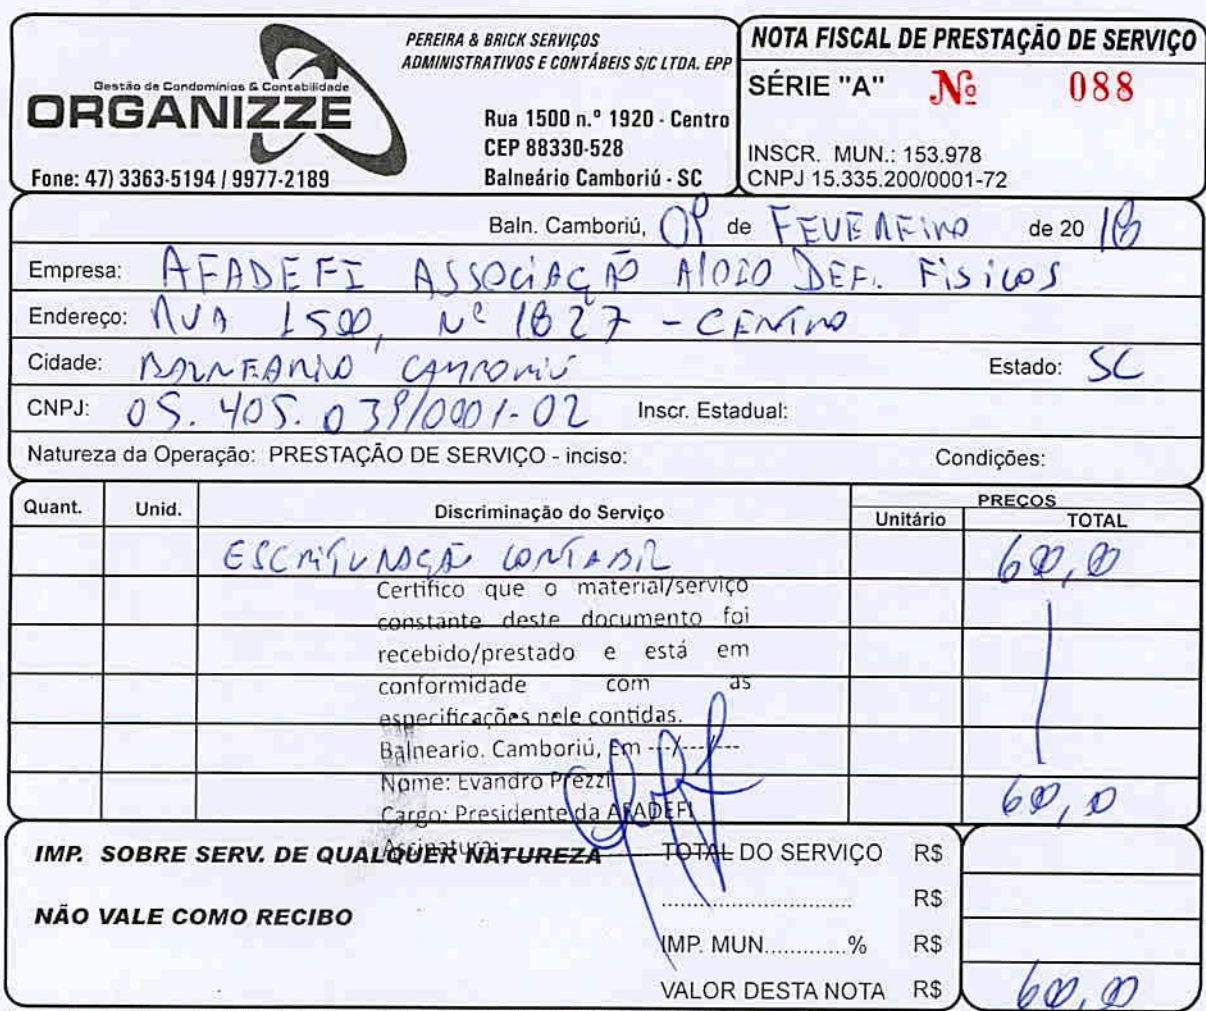 PEREIRA & BRICK SERVIÇOS
ADMINISTRATIVOS E CONTÁBEIS S/C LTDA. EPP
Gestão de Condomínios & Contabilidade
ORGANIZZE
Rua 1500 n.º 1920 - Centro
CEP 88330-528
Fone: 47) 3363-5194 / 9977-2189
Balneário Camboriú - SC
NOTA FISCAL DE PRESTAÇÃO DE SERVIÇO
SÉRIE "A" Nº 088
INSCR. MUN.: 153.978
CNPJ 15.335.200/0001-72
Baln. Camboriú, 09 de FEVEREIRO de 20 18
Empresa: AFADEFI ASSOCIAÇÃO APOIO DEF. FÍSICOS
Endereço: RUA 1500, Nº 1827 - CENTRO
Cidade: BALNEARIO CAMBORIÚ Estado: SC
CNPJ: 05.405.039/0001-02 Inscr. Estadual:
Natureza da Operação: PRESTAÇÃO DE SERVIÇO - inciso: Condições:
Quant. Unid. Discriminação do Serviço PREÇOS
Unitário TOTAL
ESCRITURAÇÃO CONTABIL 600,00
Certifico que o material/serviço
constante deste documento foi
recebido/prestado e está em
conformidade com as
especificações nele contidas.
Balneario. Camboriú, Em ---/---/---
Nome: Evandro Prezzi
Cargo: Presidente da AFADEFI 600,0
Assinatura:
IMP. SOBRE SERV. DE QUALQUER NATUREZA TOTAL DO SERVIÇO R$
R$
NÃO VALE COMO RECIBO
IMP. MUN.............% R$
VALOR DESTA NOTA R$ 600,00